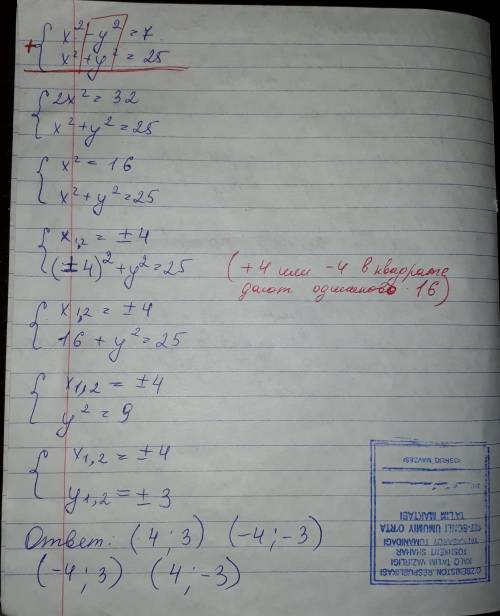 + { x² - y² = 7
x² + y² = 25
{ 2x² = 32
x² + y² = 25
{ x² = 16
x² + y² = 25
{ x1,2 = ± 4
(± 4)² + y² = 25
(+4 или -4 в квадрате
дают одинаково 16)
{ x1,2 = ± 4
16 + y² = 25
{ x1,2 = ± 4
y² = 9
{ x1,2 = ± 4
y1,2 = ± 3
Ответ: (4; 3) (-4; -3)
(-4; 3) (4; -3)
O'ZBEKISTON RESPUBLIKASI
XALQ TA'LIM VAZIRLIGI
TOSHKENT SHAHAR
TUMANIDAGI
UMUMIY O'RTA
TA'LIM MAKTABI